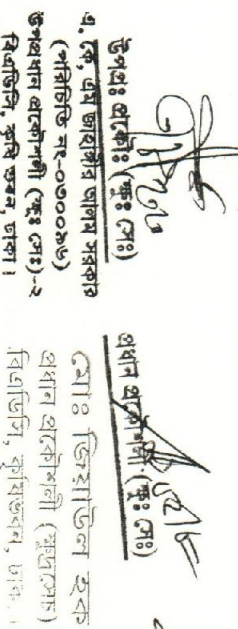 উপপ্রঃ প্রকৌঃ (ক্ষুঃ সেঃ)
এ, কে, এম জাহাঙ্গীর আলম সরকার
(পরিচিতি নং-০৭০০৯৬)
উপপ্রধান প্রকৌশলী (ক্ষুঃ সেঃ)-২
বিএডিসি, কৃষি ভবন, ঢাকা।
প্রধান প্রকৌশলী (ক্ষুঃ সেঃ)
মোঃ জিয়াউল হক
প্রধান প্রকৌশলী (ক্ষুদ্রসেচ)
বিএডিসি, কৃষিভবন, ঢাকা।